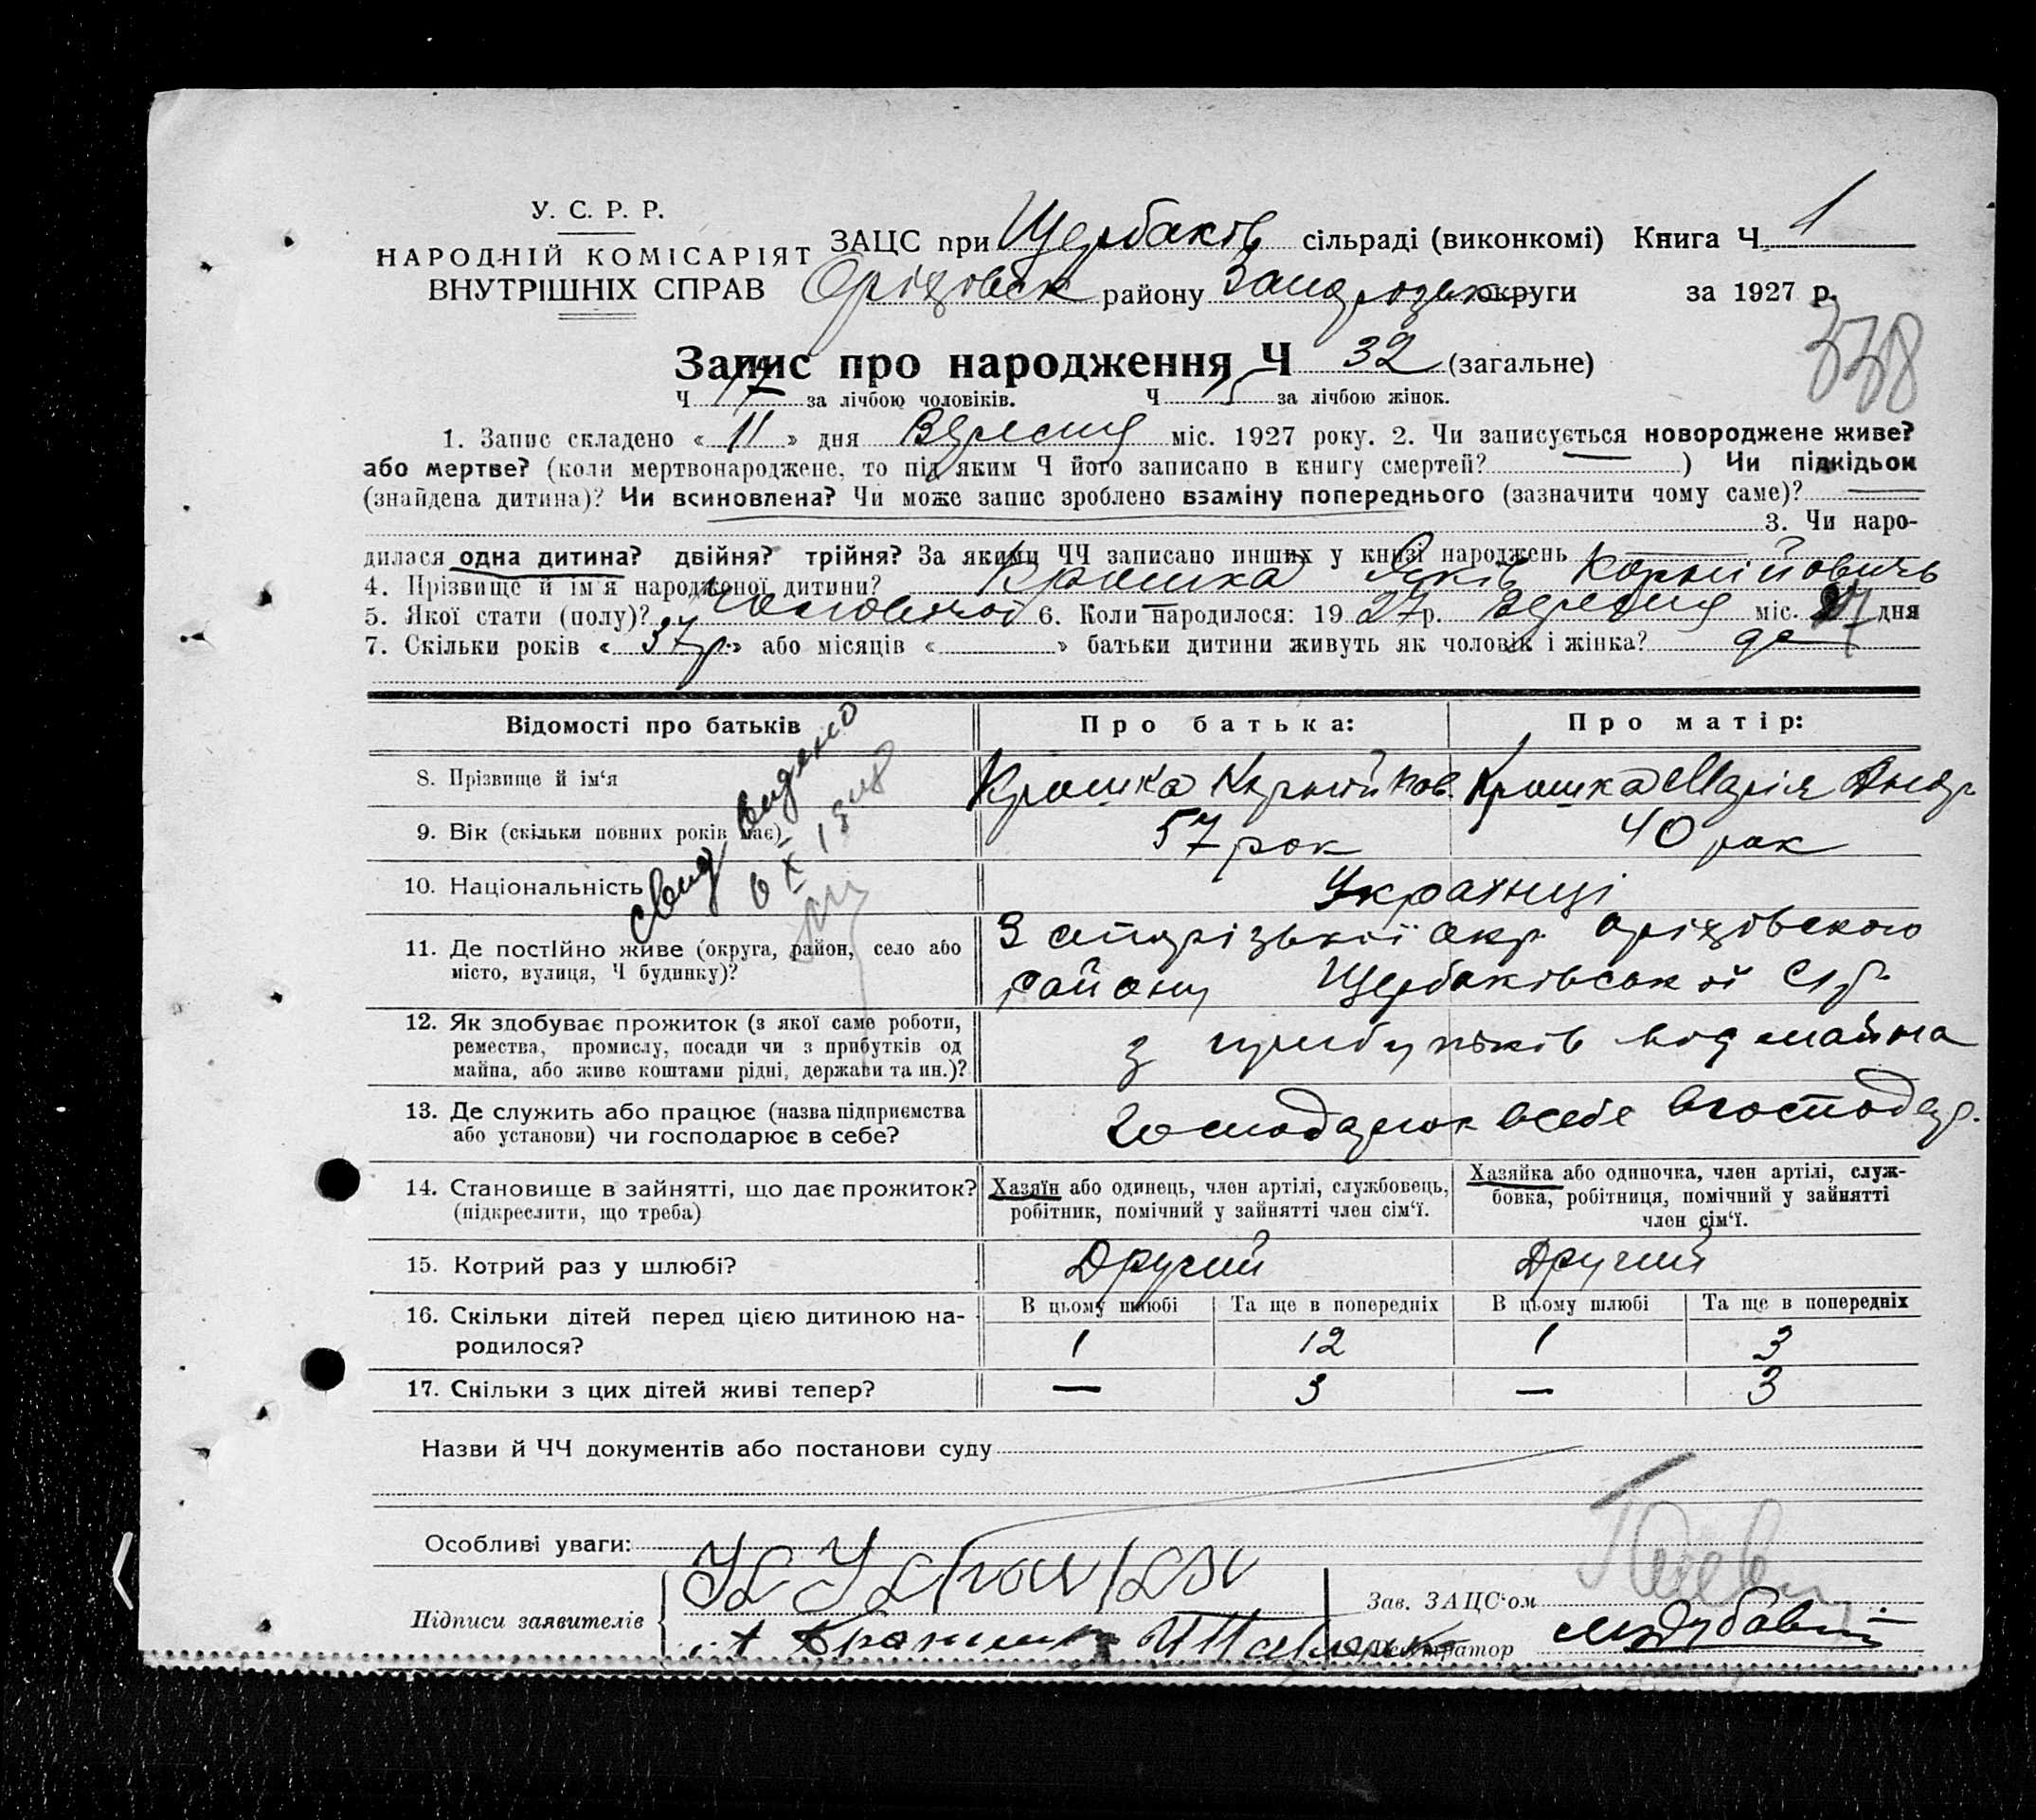 У. С. Р. Р.
НАРОДНІЙ КОМІСАРІЯТ
ВНУТРІШНІХ СПРАВ
ЗАЦС при Щербаків сільраді (виконкомі) Книга Ч. 1
Оріхівск району Запорозьк округи за 1927 р.
338
Запис про народження Ч 32 (загальне)
Ч 17 за лічбою чоловіків. Ч 15 за лічбою жінок.
1. Запис складено « 11 » дня Вересня міс. 1927 року. 2. Чи записується новороджене живе?
або мертве? (коли мертвонароджене, то під яким Ч його записано в книгу смертей? ) Чи підкідьок
(знайдена дитина)? Чи всиновлена? Чи може запис зроблено взаміну попереднього (зазначити чому саме)?
3. Чи наро-
дилася одна дитина? двійня? трійня? За якими ЧЧ записано инших у книзі народжень
4. Прізвище й ім'я народженої дитини? Крошка Яків Корнійовичь
5. Якої стати (полу)? чоловічої 6. Коли народилося: 1927 р. Вересня міс. дня
7. Скільки років « 3 р.» або місяців « » батьки дитини живуть як чоловік і жінка? да
Відомості про батьків Про батька: Про матір:
8. Прізвище й ім'я Крошка Корній Крошка Марія Андр
9. Вік (скільки повних років має) 57 рок 40 рок
10. Національність Українці
свид видано
6 X
11. Де постійно живе (округа, район, село або Запорізької окр Оріхівского
місто, вулиця, Ч будинку)? району Щербаківської с/р
12. Як здобуває прожиток (з якої саме роботи,
ремества, промислу, посади чи з прибутків од з прибутків від майна
майна, або живе коштами рідні, держави та ин.)?
13. Де служить або працює (назва підприємства
або установи) чи господарює в себе? всебе вгосподар.
14. Становище в зайнятті, що дає прожиток? Хазяїн або одинець, член артілі, службовець, Хазяйка або одиночка, член артілі, служ-
(підкреслити, що треба) робітник, помічний у зайнятті член сім'ї. бовка, робітниця, помічний у зайнятті
член сім'ї.
15. Котрий раз у шлюбі? Другий Другий
В цьому шлюбі Та ще в попередніх В цьому шлюбі Та ще в попередніх
16. Скільки дітей перед цією дитиною на-
родилося? 1 12 1 3
17. Скільки з цих дітей живі тепер? — 3 — 3
Назви й ЧЧ документів або постанови суду
Особливі уваги:
Підписи заявителів
Зав. ЗАЦС'ом
Реєстратор